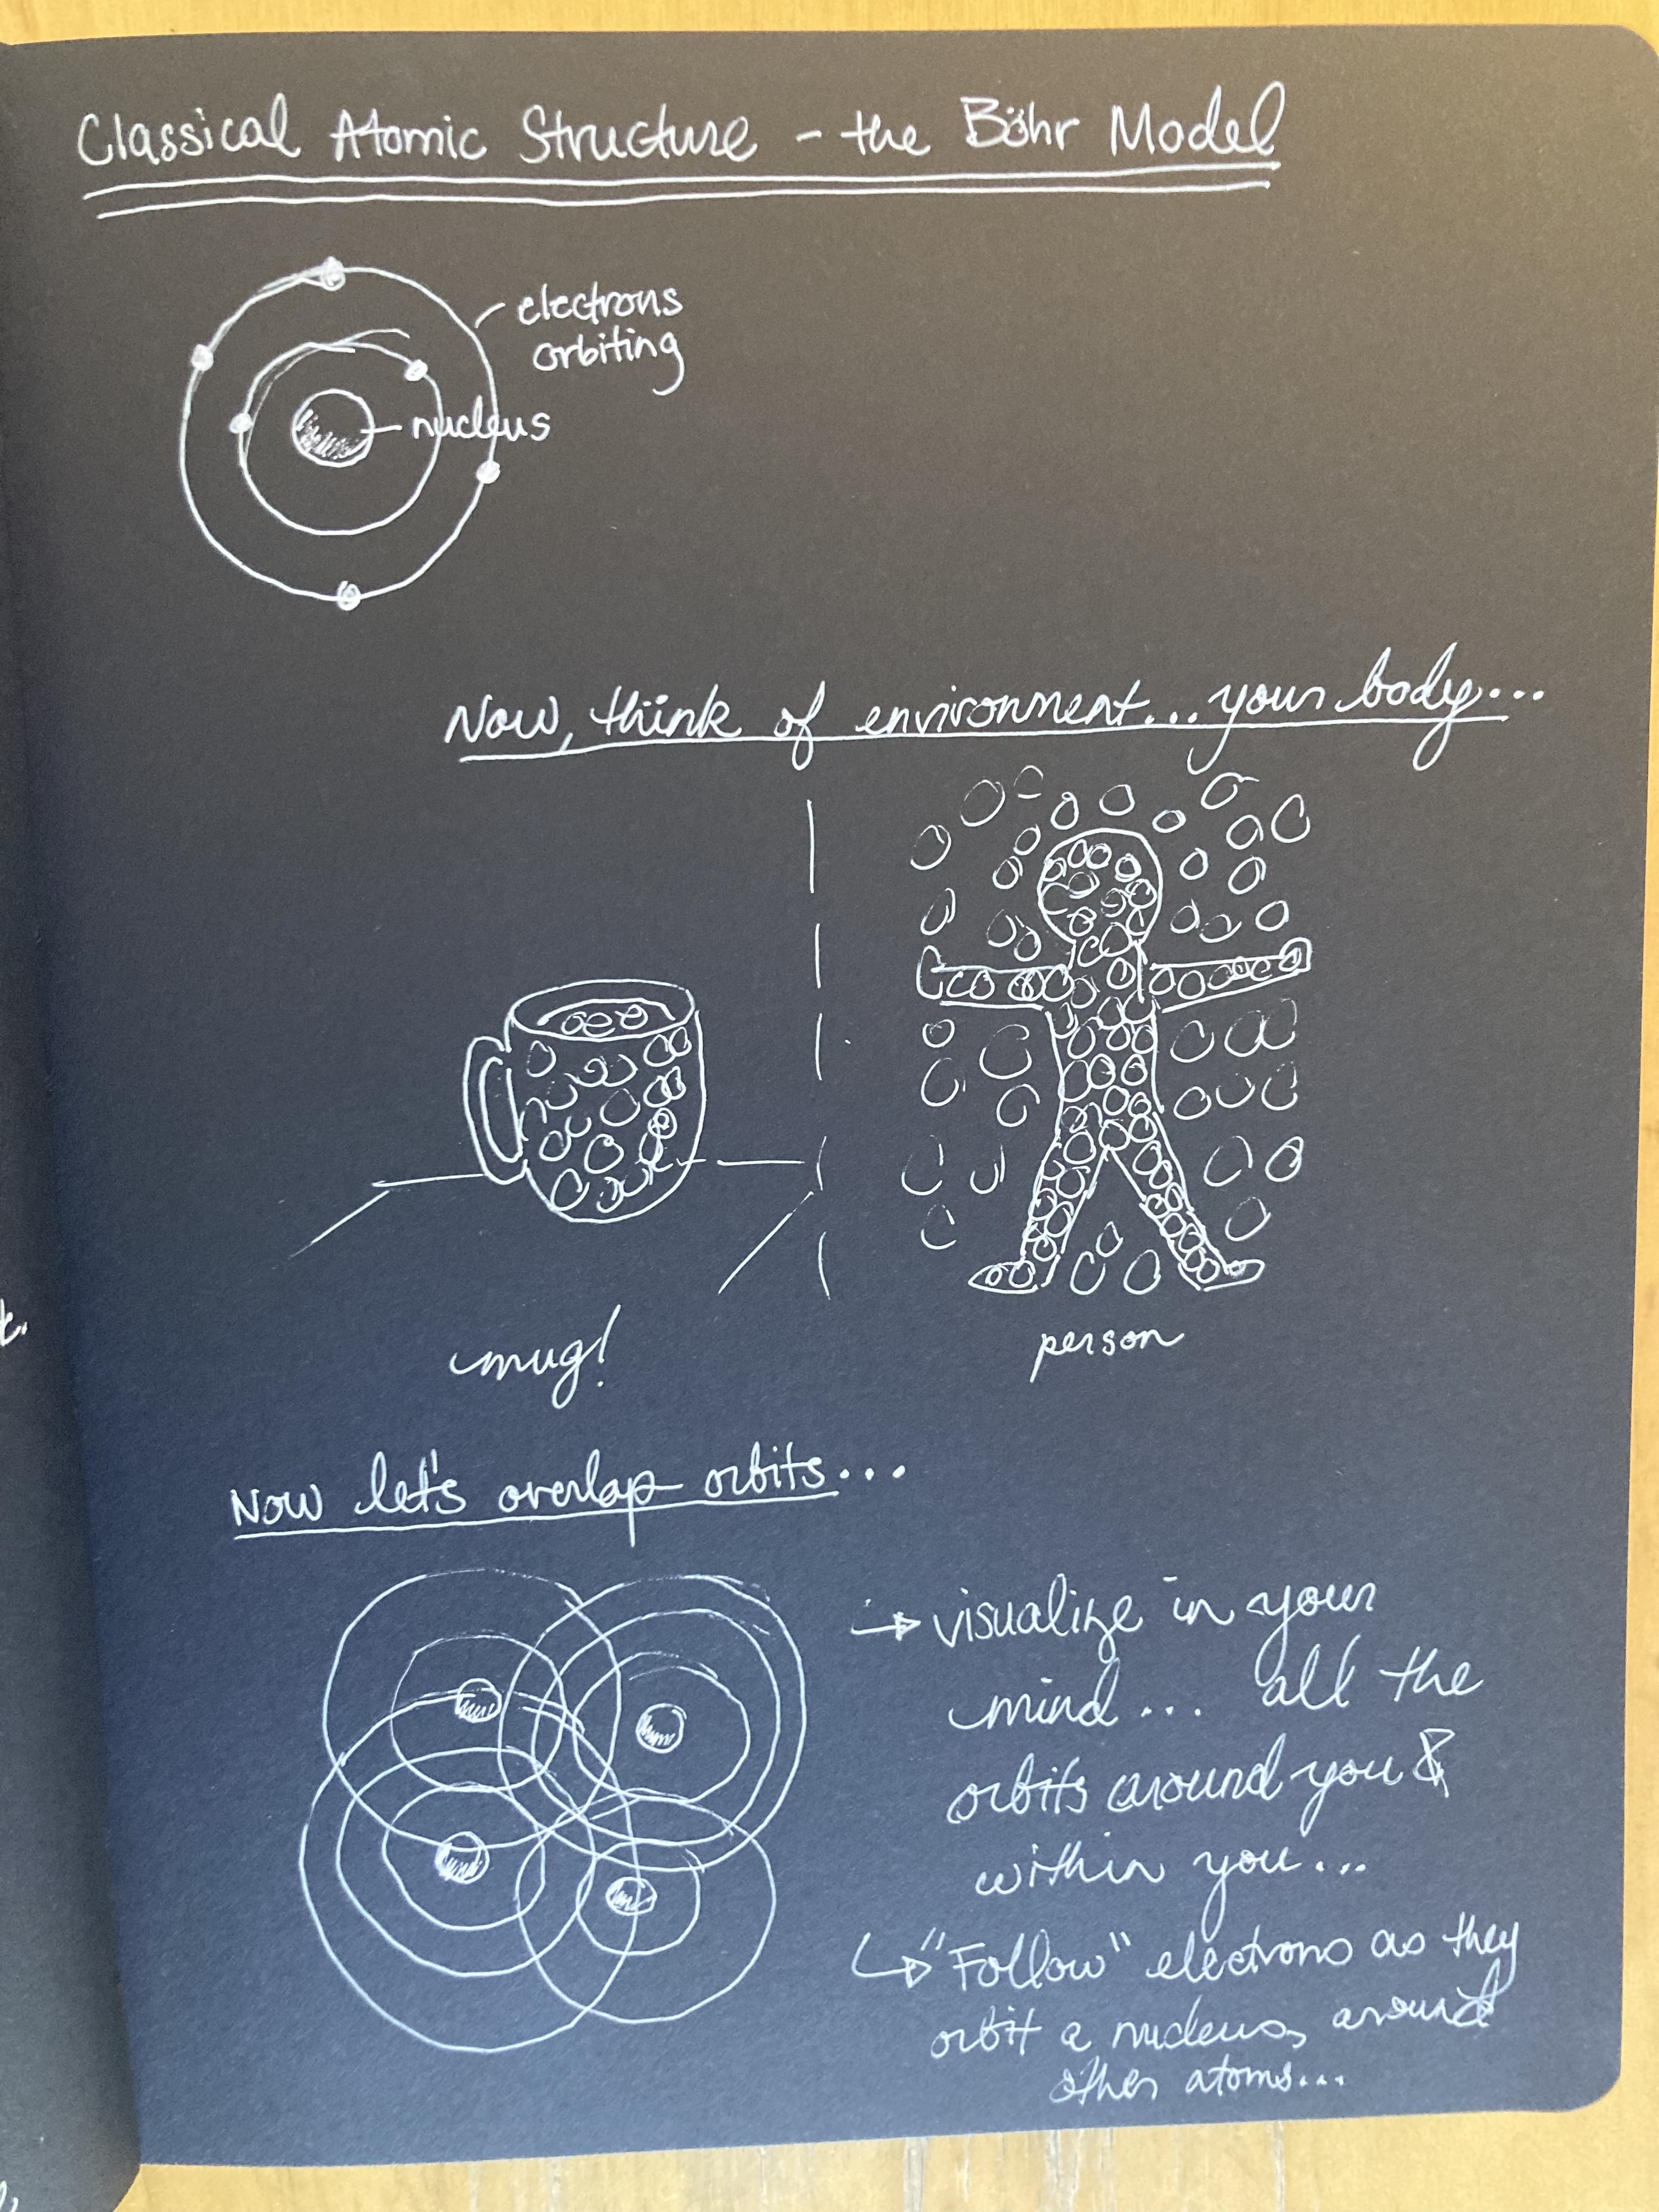 Classical Atomic Structure - the Böhr Model
electrons
orbiting
nucleus
Now, think of environment... your body...
mug!
person
Now let's overlap orbits...
→ visualize in your
mind... all the
orbits around you &
within you...
↳ "Follow" electrons as they
orbit a nucleus, around
other atoms...